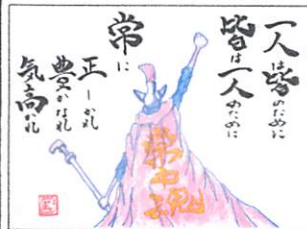 一人は皆のために
皆は一人のために
常に
正しかれ
豊かなれ
気高かれ